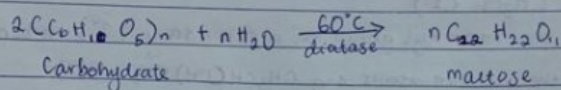 2(C₆H₁₀O₅)ₙ + nH₂O 60°C diatase → nC₂₂H₂₂O₁₁
Carbohydrate maltose